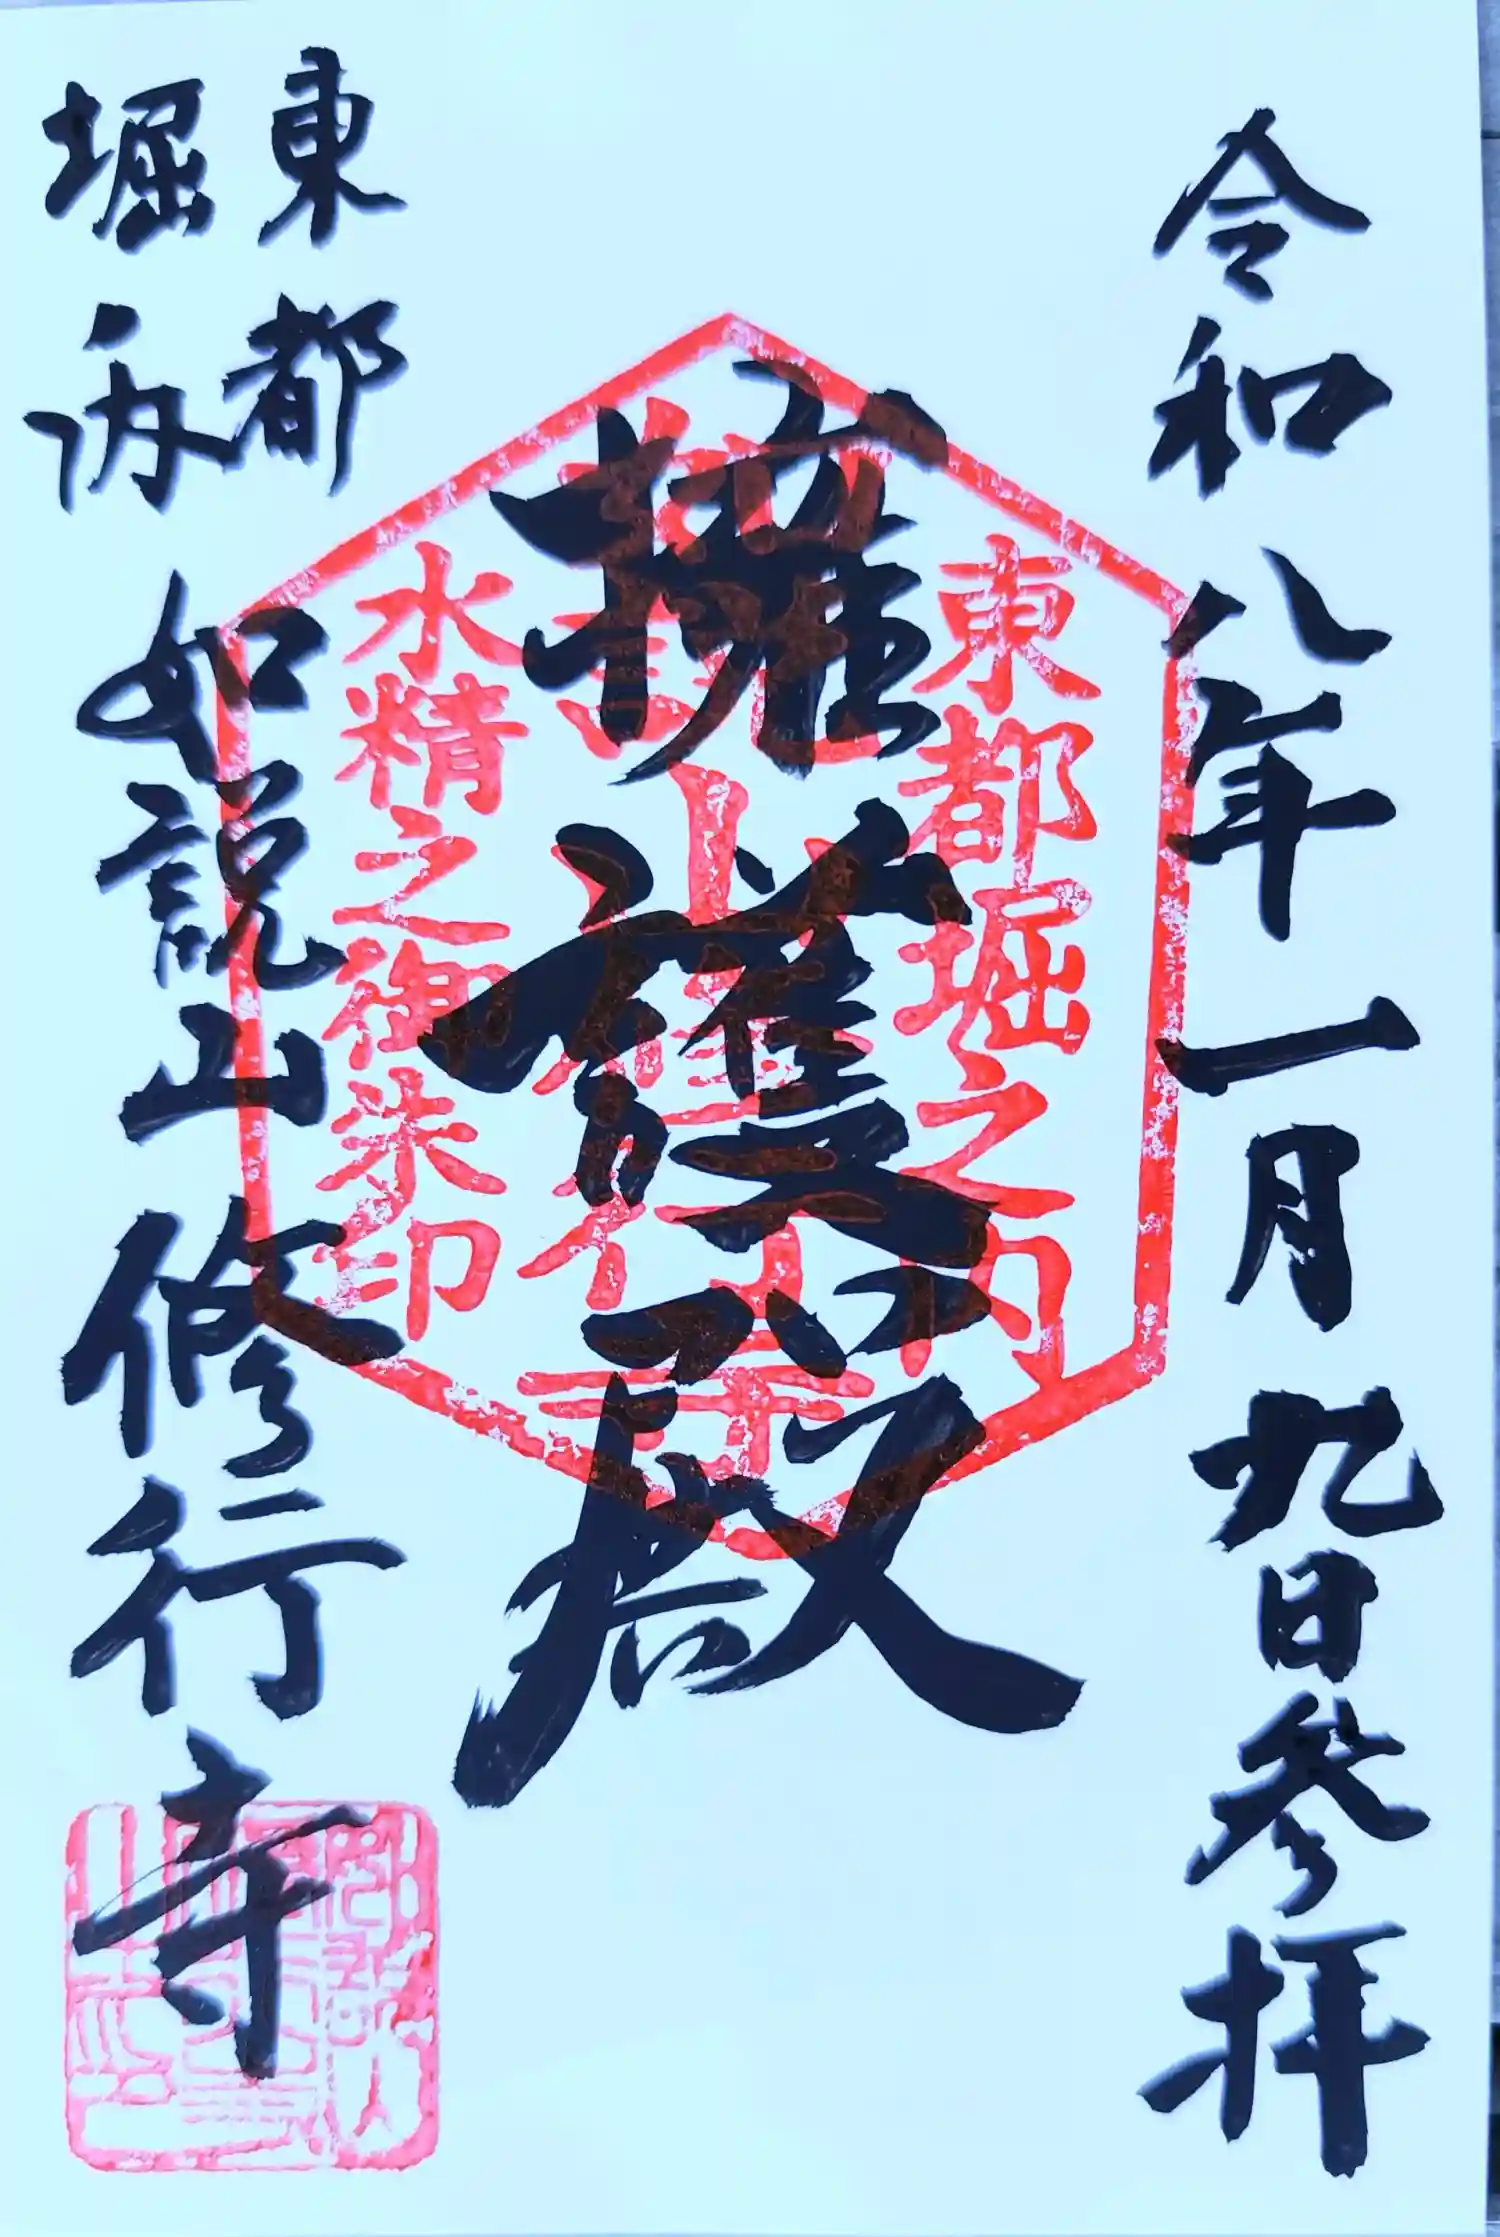 令和八年一月九日参拝
擁護殿
東都
堀ノ内
如説山修行寺
東都堀之内
如説山修行寺
水精之御朱印